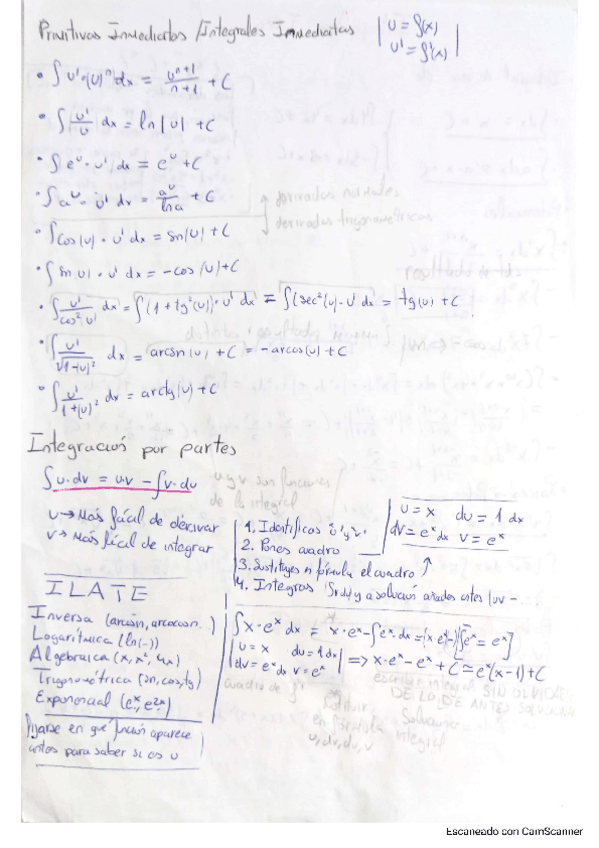 Primitivas Inmediatas / Integrales Inmediatas | u = f(x)
u' = f'(x) |
• ∫ u'·(u)^n dx = u^(n+1)/(n+1) + C
• ∫ u'/u dx = ln|u| + C
• ∫ e^u · u' dx = e^u + C
• ∫ a^u · u' dx = a^u/ln a + C
→ derivadas normales
→ derivadas trigonométricas
• ∫ cos(u) · u' dx = sn(u) + C
• ∫ sn(u) · u' dx = -cos(u) + C
• ∫ u'/cos²(u) dx = ∫(1 + tg²(u)) · u' dx = ∫(sec²(u) · u' dx = tg(u) + C
• ∫ u'/√1-(u)² dx = arcsn(u) + C = -arcos(u) + C
• ∫ u'/1+(u)² dx = arctg(u) + C
Integración por partes
∫ u·dv = u·v - ∫ v·du
u y v son funciones
de la integral
u → Más fácil de derivar
v → Más fácil de integrar
1. Identificas u y v.
2. Pones cuadro
3. Sustituyes n fórmula el cuadro ↑
4. Integras
u = x du = 1 dx
dv = e^x dx v = e^x
ILATE
Inversa (arcsin, arcocosn...)
Logarítmica (ln(-))
Algebraica (x, x², 4x)
Trigonométrica (sn, cos, tg)
Exponencial (e^x, e^2x)
fijarse en qué función aparece
antes para saber si es u
∫ x·e^x dx = x·e^x - ∫ e^x dx = (x·e^x)-[∫e^x = e^x]
u = x du = 1 dx
dv = e^x dx v = e^x
⟹ x·e^x - e^x + C = e^x(x-1) + C
cuadro de
sustituir
en fórmula
u, dv, du, v
escribir integral SIN OLVIDAR
DE LO DE ANTES
Solucionar
integral
Escaneado con CamScanner